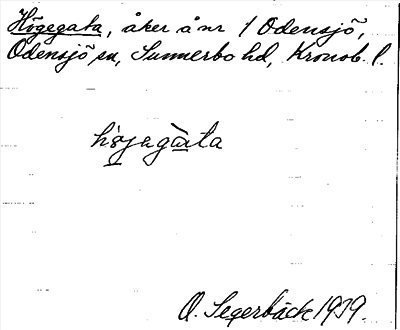 Högegata, åker å nr 1 Odensjö,
Odensjö sn, Sunnerbo hd, Kronob. l.
högagàta
O. Segerbäck 1939.